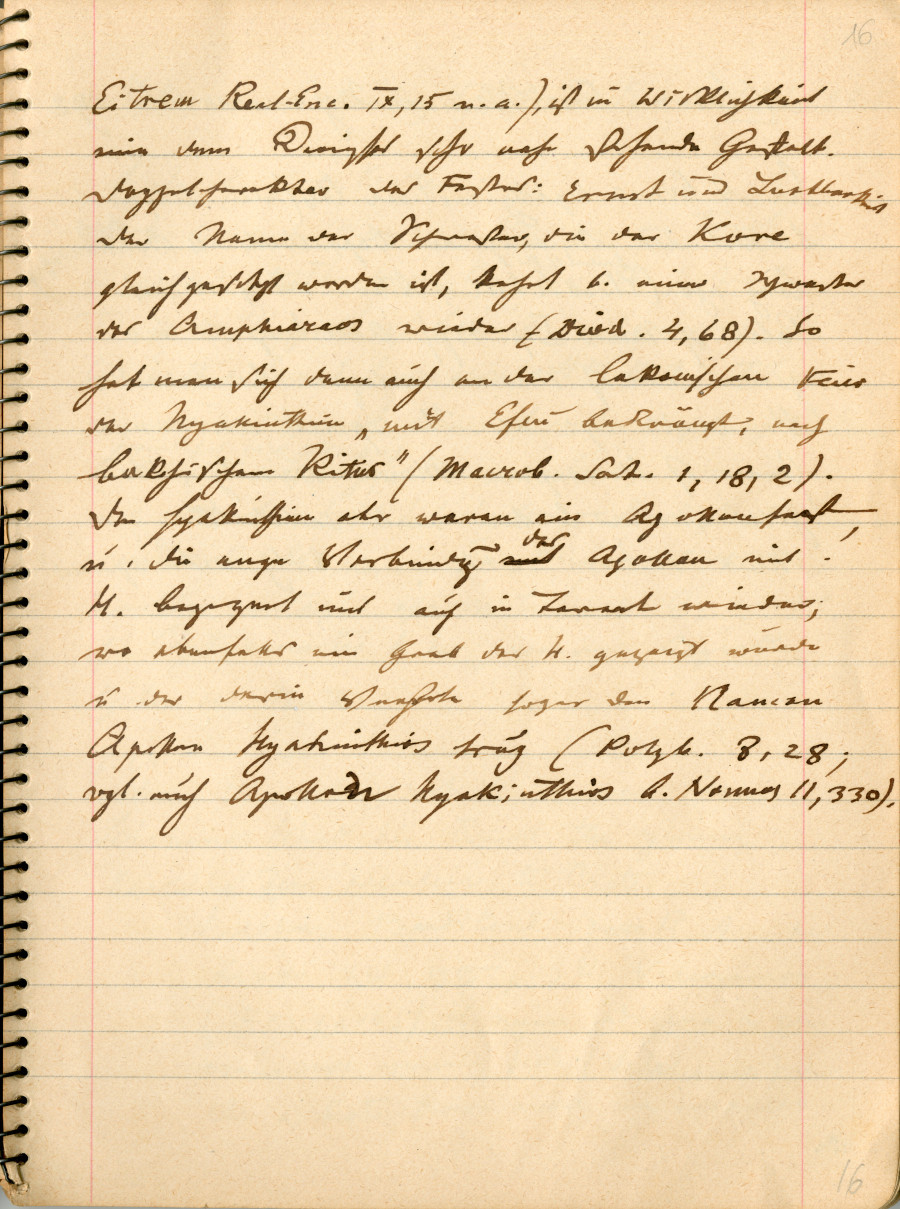 16
Eitrem Real-Enc. IX, 15 u. a.), ist in Wirklichkeit
eine dem Dionysos sehr nahe stehende Gestalt.
Doppelcharakter des Festes: Ernst und Lustbarkeit
Der Name der Schwester, die der Kore
gleichgesetzt worden ist, kehrt b. einer Schwester
des Amphiaraos wieder (Diod. 4, 68). So
hat man sich denn auch an der lakonischen Feier
der Hyakinthien „mit Efeu bekränzt, nach
bakchischem Ritus" (Macrob. Sat. 1, 18, 2).
Die Hyakinthien aber waren ein Apollonfest,
u. die enge Verbindg des Apollon mit
H. begegnet uns auch in Tarent wieder,
wo ebenfalls ein Grab des H. gezeigt wurde
u. der darin Verehrte sogar den Namen
Apollon Hyakinthios trug (Polyb. 8, 28;
vgl. auch Apollon Hyakinthios b. Nonnos 11, 330).
16